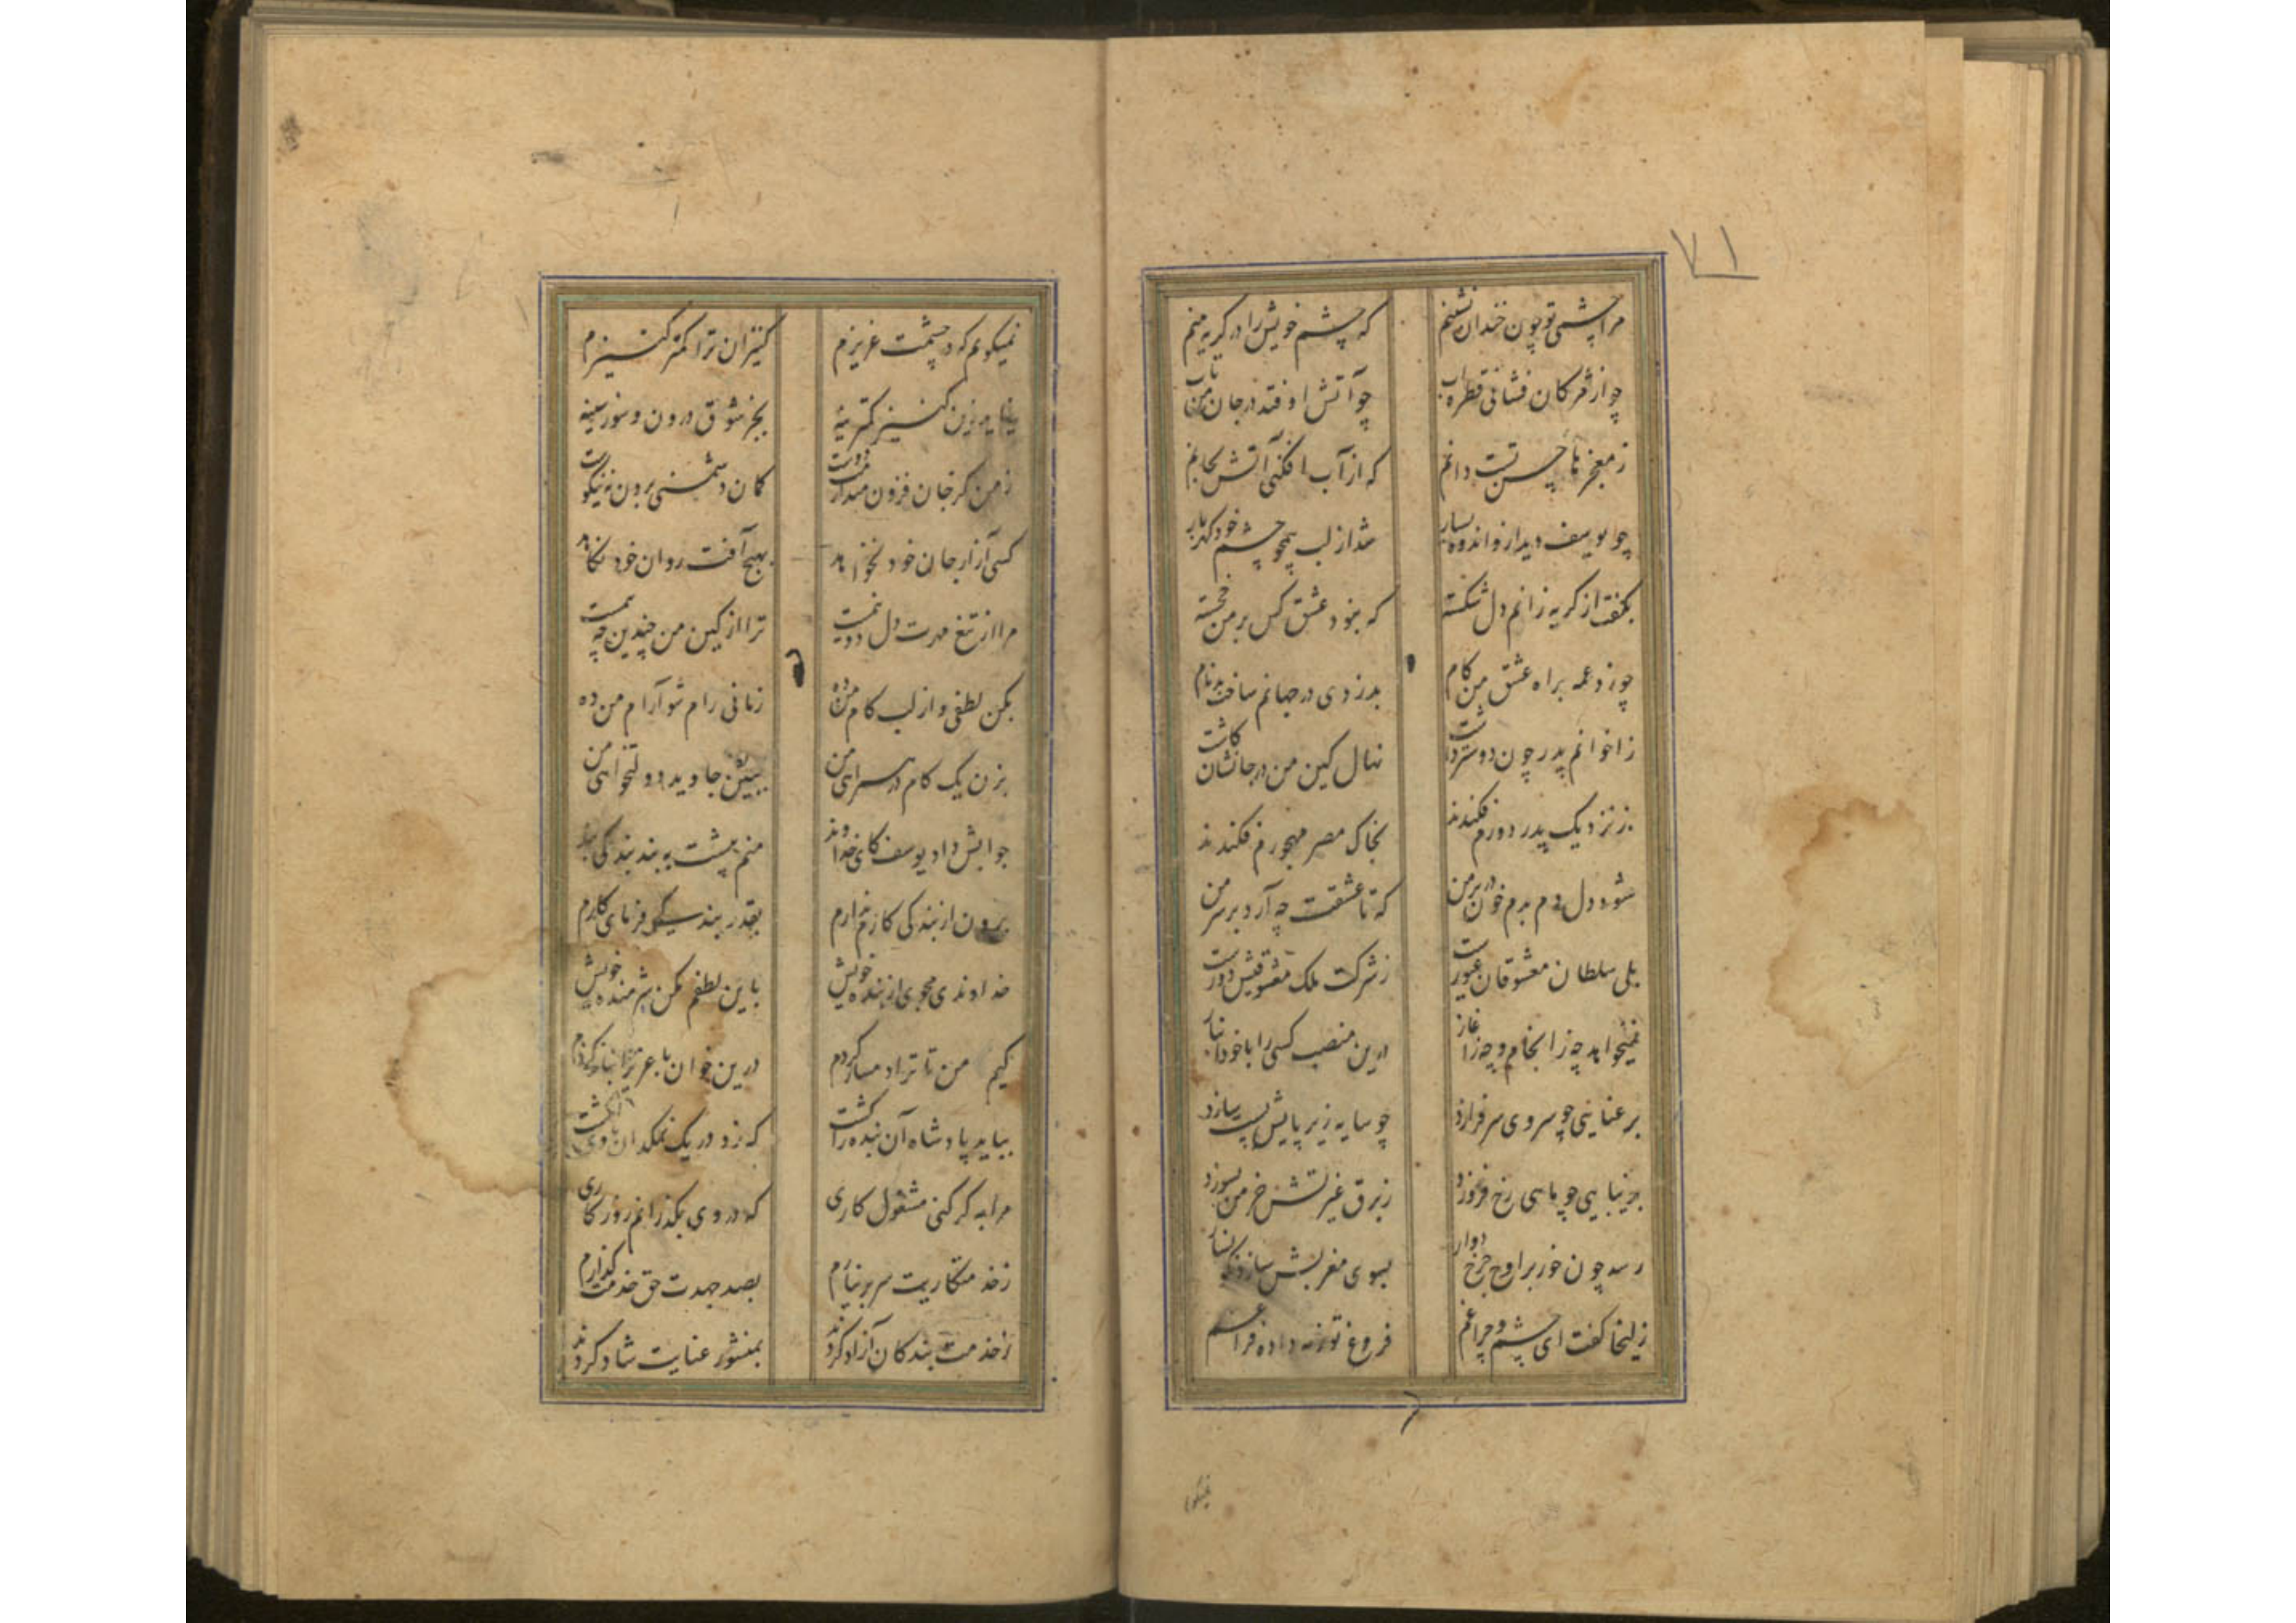 ۷۱
مرا چشمی تو چون خندان نشینم که چشم خویش را در گریه بینم
چو از مژگان فشانی قطره آب چو آتش افتد در جان من تاب
ز معجزهای حسن تست دانم که از آب افکنی آتش بجانم
چو یوسف دید از و اندوه بسیار شد از لب همچو چشم خود گهربار
بگفت از گریه زانم دل شکسته که نبود عشق کس بر من خجسته
چو زد عمه براه عشق من گام بدزدی در جهانم ساخت بدنام
ز اخوانم پدر چون دوستر داشت نهال کین من در جانشان کاشت
ز نزدیک پدر دورم فکندند بخاک مصر مهجورم فکندند
شود دل دم بدم خون در بر من که تا عشقت چه آرد بر سر من
بلی سلطان معشوقان غیورست ز شرکت ملک معشوقیش دورست
نمیخواهد چه ز انجام و چه ز آغاز درین منصب کسی را با خود انباز
برعنایی چو سروی سر فرازد چو سایه زیر پایش پست سازد
بزیبایی چو ماهی رخ فروزد ز برق غیرتش خرمن بسوزد
رسد چون خور بر اوج چرخ دوار بسوی مغربش سازد نگونسار
زلیخا گفت ای چشم و چراغم فروغ تو ز مه داده فراغم
نمیگویم که در چشمت عزیزم کنیزان ترا کمتر کنیزم
نیاید زین کنیز کمترینه بجز شوق درون و سوز سینه
ز من کز جان فزون میدارمت دوست گمان دشمنی بردن نه نیکوست
کسی آزار جان خود نخواهد بهیچ آفت روان خود نکاهد
مرا از تیغ مهرت دل دو نیمست ترا از کین من چندین چه بیمست
بکن لطفی و از لب کام من ده زمانی رام شو آرام من ده
بزن یک گام در همراهی من ببین جاوید دولتخواهی من
جوابش داد یوسف کای خداوند منم پیشت به بند بندگی بند
برون از بندگی کاری ندارم بقدر بندگی فرمای کارم
خداوندی مجوی از بنده خویش باین لطفم مکن شرمنده خویش
کیم من تا ترا دمساز گردم درین خوان با عزیز انباز گردم
بباید پادشاه آن بنده را کشت که زد در یک نمکدان با وی انگشت
مرا به گر کنی مشغول کاری که در وی بگذرانم روزگاری
ز خدمتکاریت سر بر نیارم بصد جهدت حق خدمت گذارم
ز خدمت بندگان آزاد گردند بمنشور عنایت شاد گردند